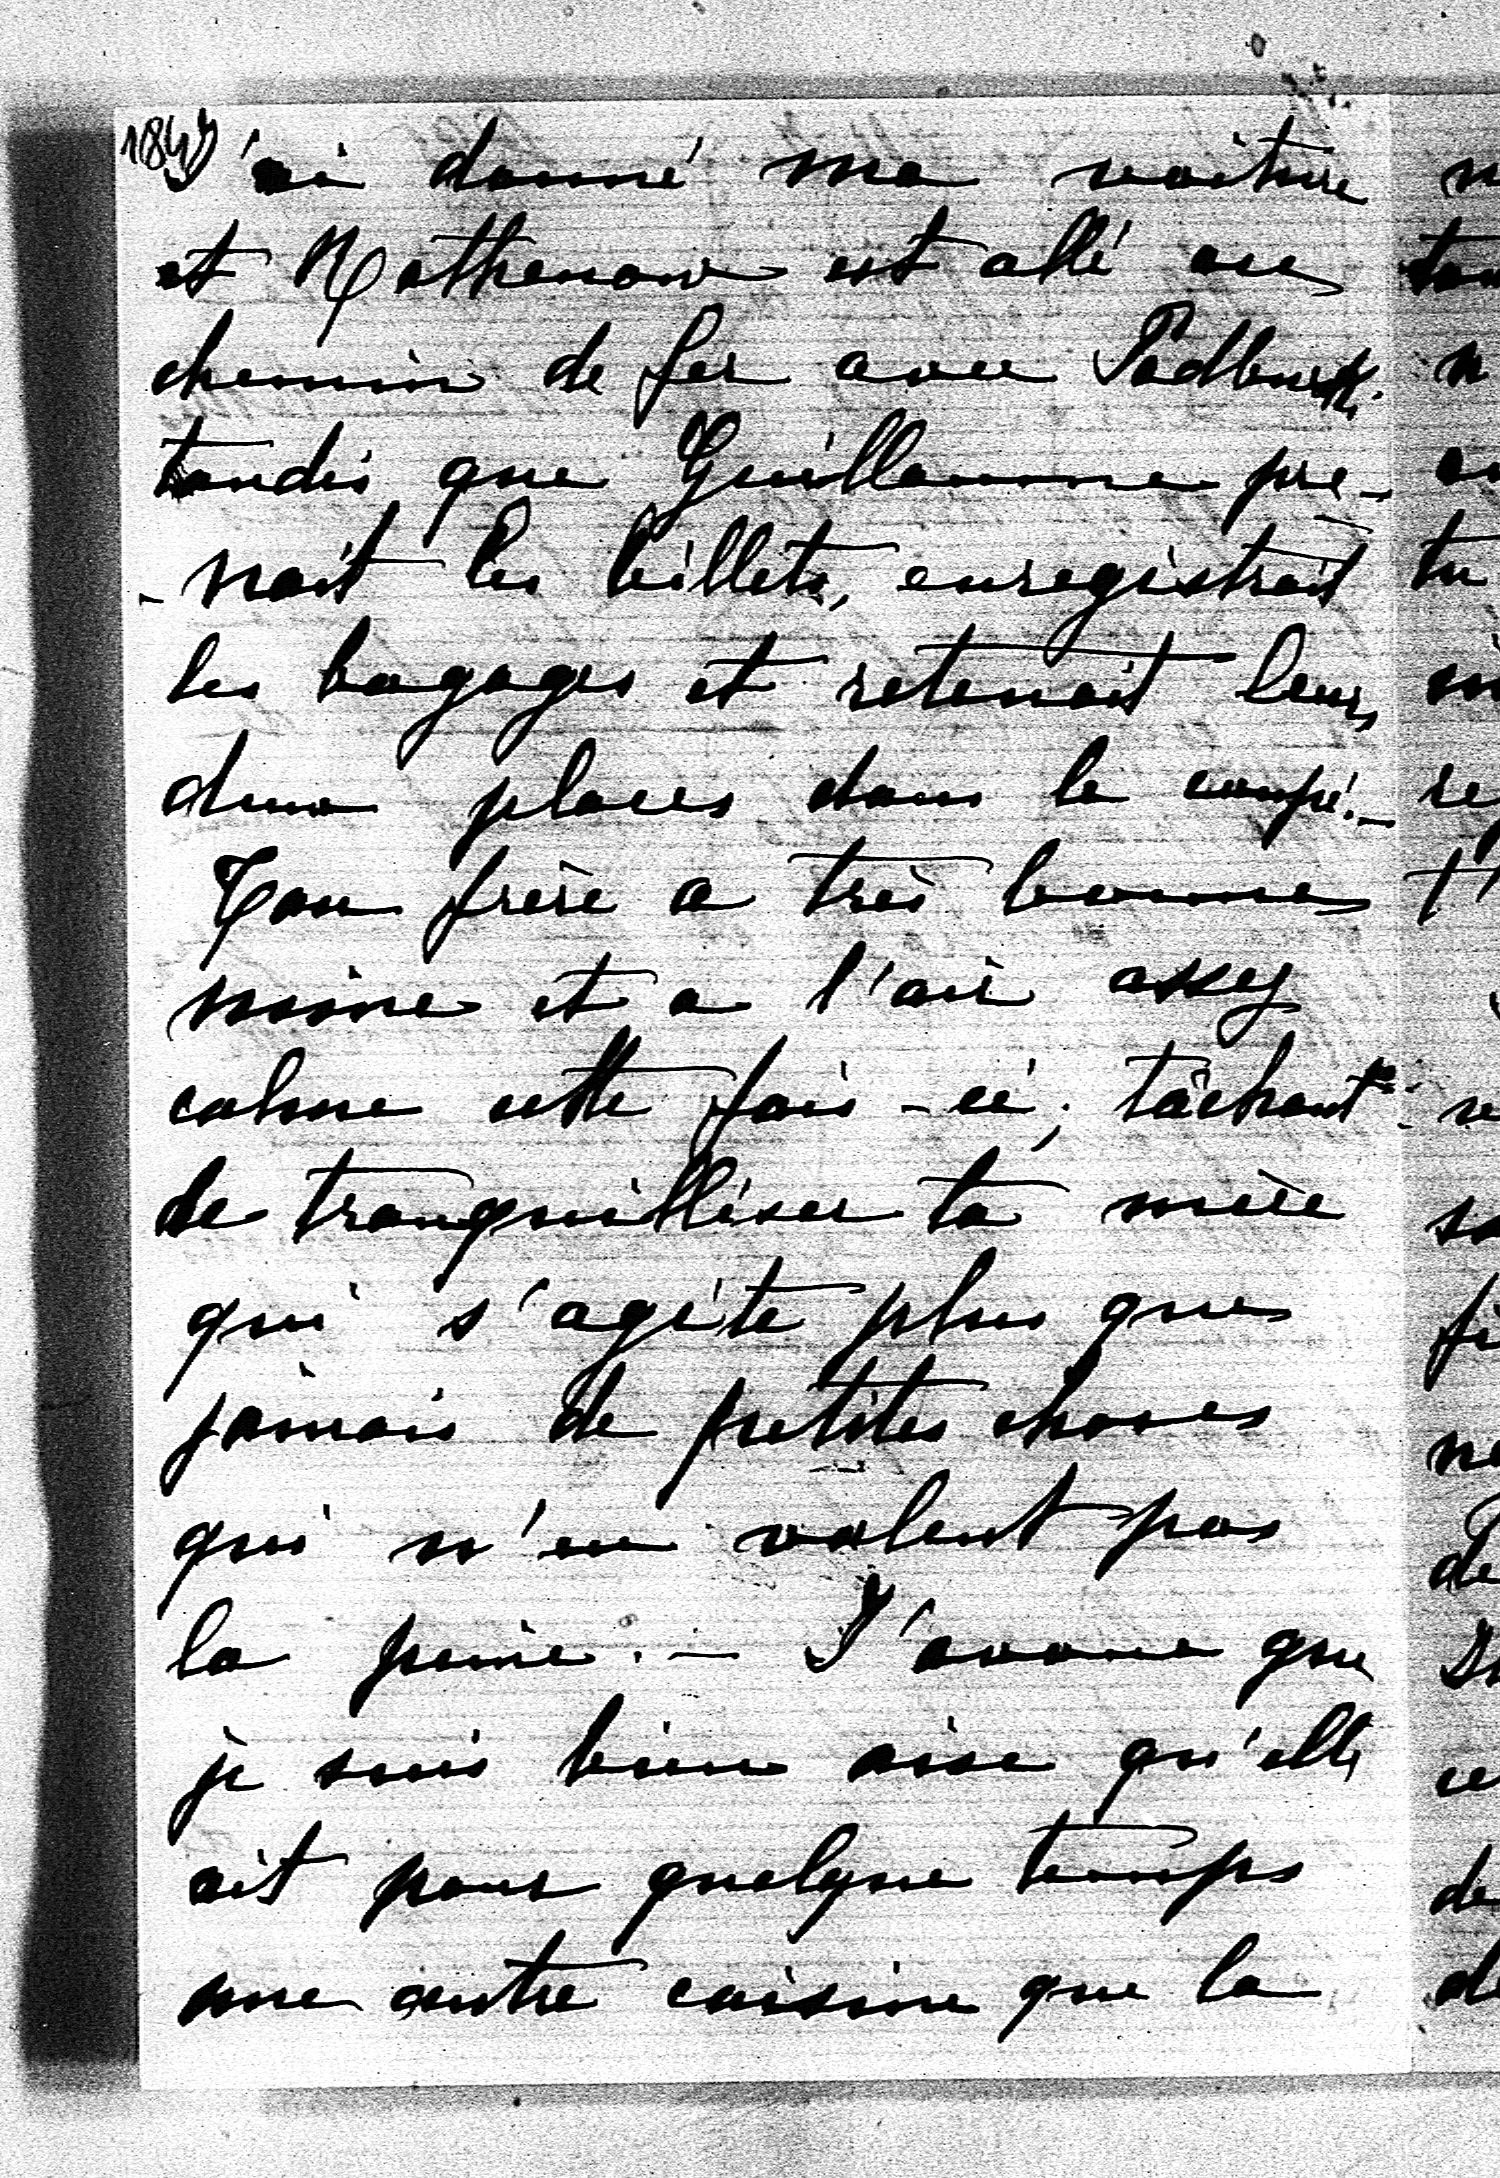 J'ai donné ma voiture
et Rothenow est allé au
chemin de fer avec
tandis que Guillaume pre-
-nait les billets, enregistrait
les bagages et retenait leurs
deux places dans le coupé. -
Ton frère a très bonne
mine et a l'air assez
calme cette fois-ci, tâchant
de tranquilliser ta mère
qui s'agite plus que
jamais de petites choses
qui n'en valent pas
la peine. - J'avoue que
je suis bien aise qu'elle
ait pour quelque temps
une autre cuisine que la